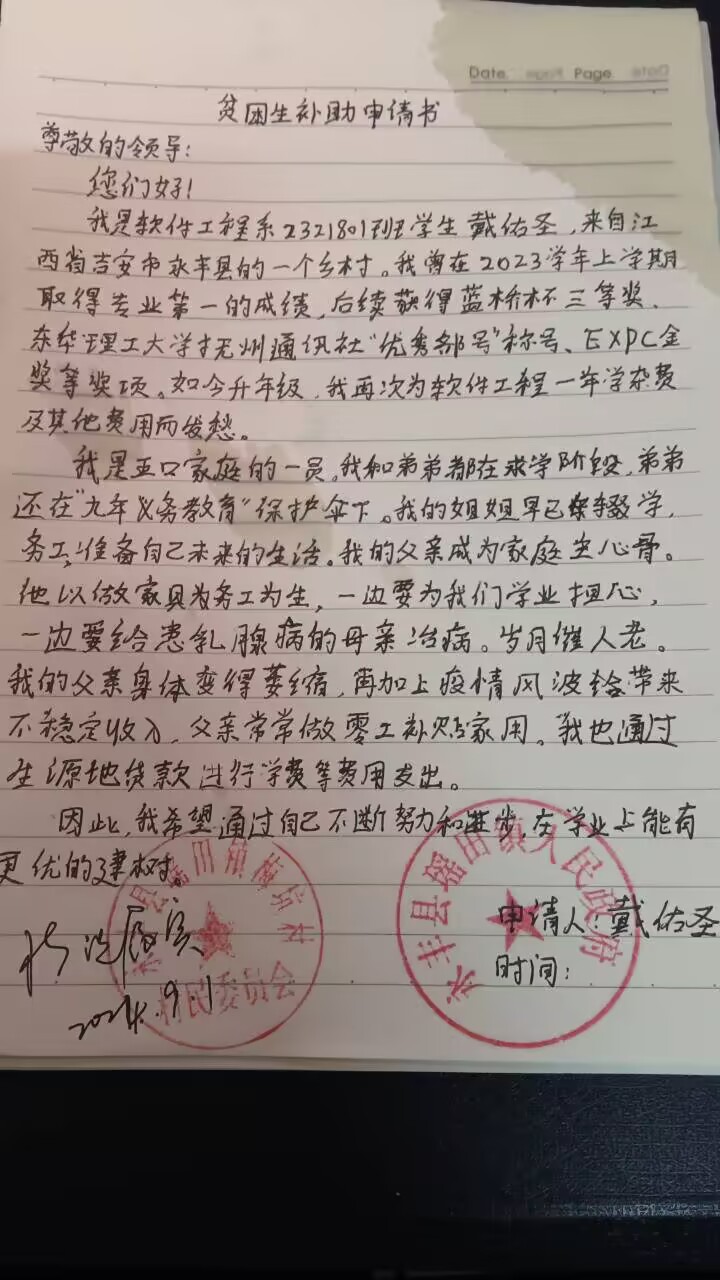 Date Page
贫困生补助申请书
尊敬的领导:
您们好!
我是软件工程系2321801班学生戴佑圣，来自江
西省吉安市永丰县的一个乡村。我曾在2023学年上学期
取得专业第一的成绩，后续获得蓝桥杯三等奖、
东华理工大学抚州通讯社“优秀部号”称号、EXPC金
奖等奖项。如今升年级，我再次为软件工程一年学杂费
及其他费用而发愁。
我是五口家庭的一员，我和弟弟都在求学阶段，弟弟
还在“九年义务教育”保护伞下。我的姐姐早已辍学，
务工，准备自己未来的生活。我的父亲成为家庭主心骨。
他以做家具为务工为生，一边要为我们学业担心，
一边要给患乳腺病的母亲治病。岁月催人老。
我的父亲身体变得萎缩，再加上疫情风波给带来
不稳定收入，父亲常常做零工补贴家用。我也通过
生源地贷款进行学费等费用支出。
因此，我希望通过自己不断努力和进步，在学业上能有
更优的建树。
县瑶田镇梅坑村
村民委员会
永丰县瑶田镇人民政府
情况属实
2024.9.1
申请人:戴佑圣
时间: